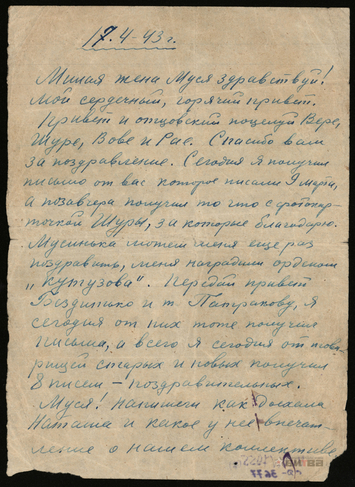 17.4-43 г.
Милая жена Муся здравствуй!
Мой сердечный, горячий привет.
Привет и отцовский поцелуй Вере,
Шуре, Вове и Рае. Спасибо вам
за поздравление. Сегодня я получил
письмо от вас которое писали 9 марта,
а позавчера получил то что с фотокар-
точкой Шуры, за которые благодарю.
Мусинька можешь меня еще раз
поздравить, меня наградили орденом
„Кутузова". Передай привет
и т. Патракову, я
сегодня от них тоже получил
письма, а всего я сегодня от това-
рищей старых и новых получил
8 писем - поздравительных.
Муся! Напиши как доехала
Наташа и какое у нее впечат-
ление о нашем коллективе